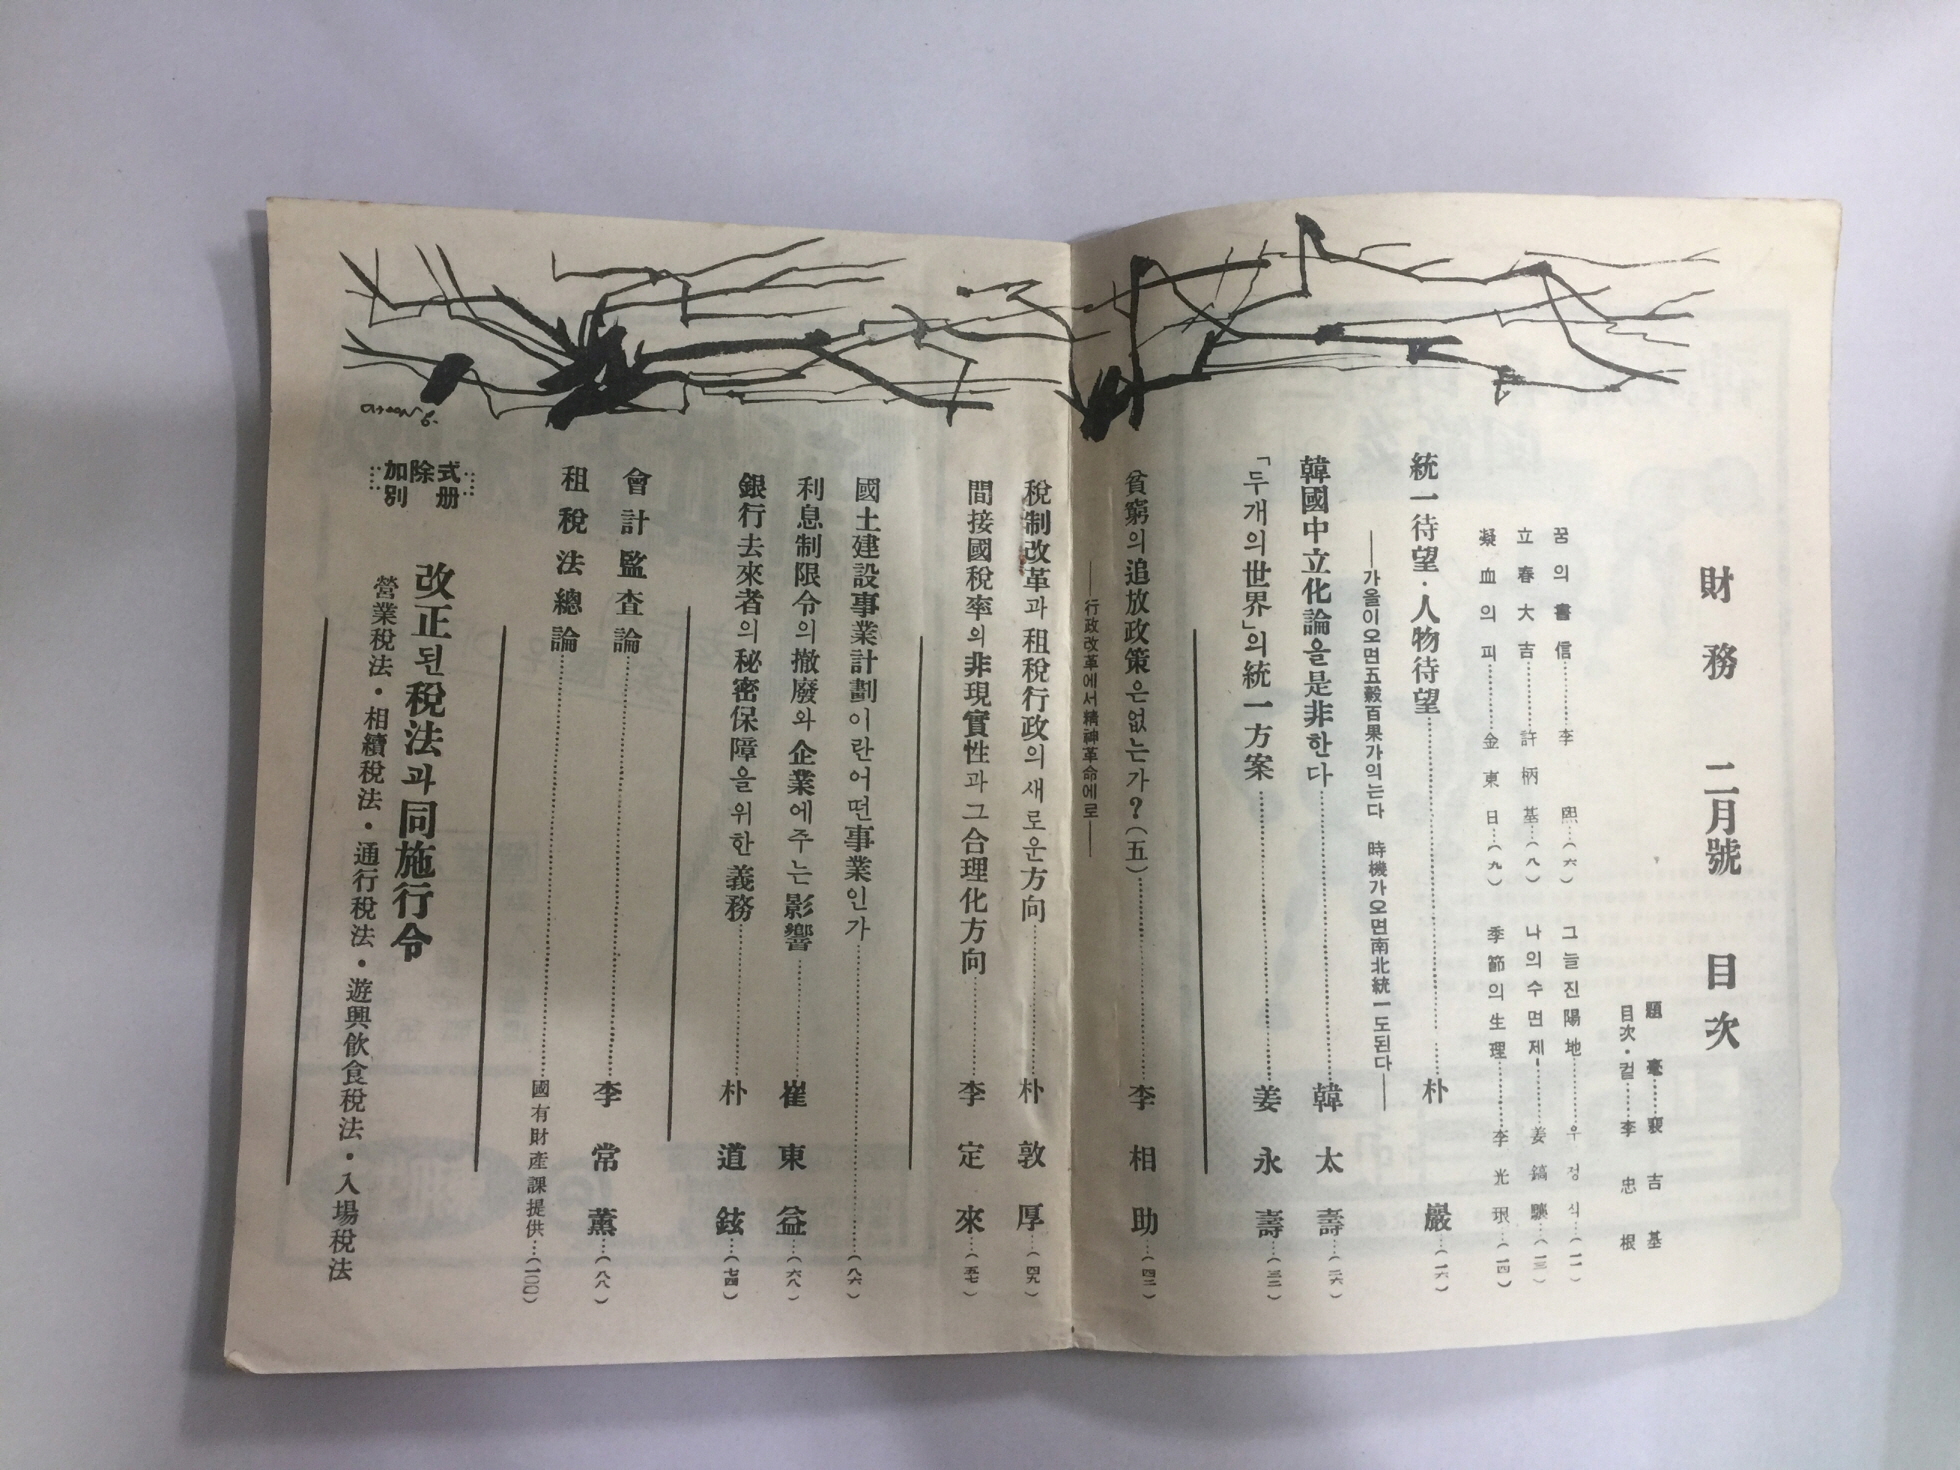 財務 二月號 目次
題毫……裵吉基
目次·컽……李忠根
꿈의書信………李熙…(六)
立春大吉………許柄基…(八)
凝血의피………金東日…(九)
그늘진陽地………우정식…(一一)
나의수면제………姜鎬驥…(一三)
季節의生理………李光珉…(一四)
統一待望·人物待望………朴巖…(一六)
——가을이오면五穀百果가익는다 時機가오면南北統一도된다——
韓國中立化論을是非한다………韓太壽…(二六)
「두개의世界」의統一方案………姜永壽…(三二)
貧窮의追放政策은없는가?(五)………李相助…(四二)
——行政改革에서精神革命에로——
稅制改革과租稅行政의새로운方向………朴敦厚…(四九)
間接國稅率의非現實性과그合理化方向………李定來…(五七)
國土建設事業計劃이란어떤事業인가………(八六)
利息制限令의撤廢와企業에주는影響………崔東益…(六八)
銀行去來者의秘密保障을위한義務………朴道鉉…(七四)
會計監査論………李常薰…(八八)
租稅法總論………國有財產課提供…(一〇〇)
加除式
別册
改正된稅法과同施行令
營業稅法·相續稅法·通行稅法·遊興飮食稅法·入場稅法